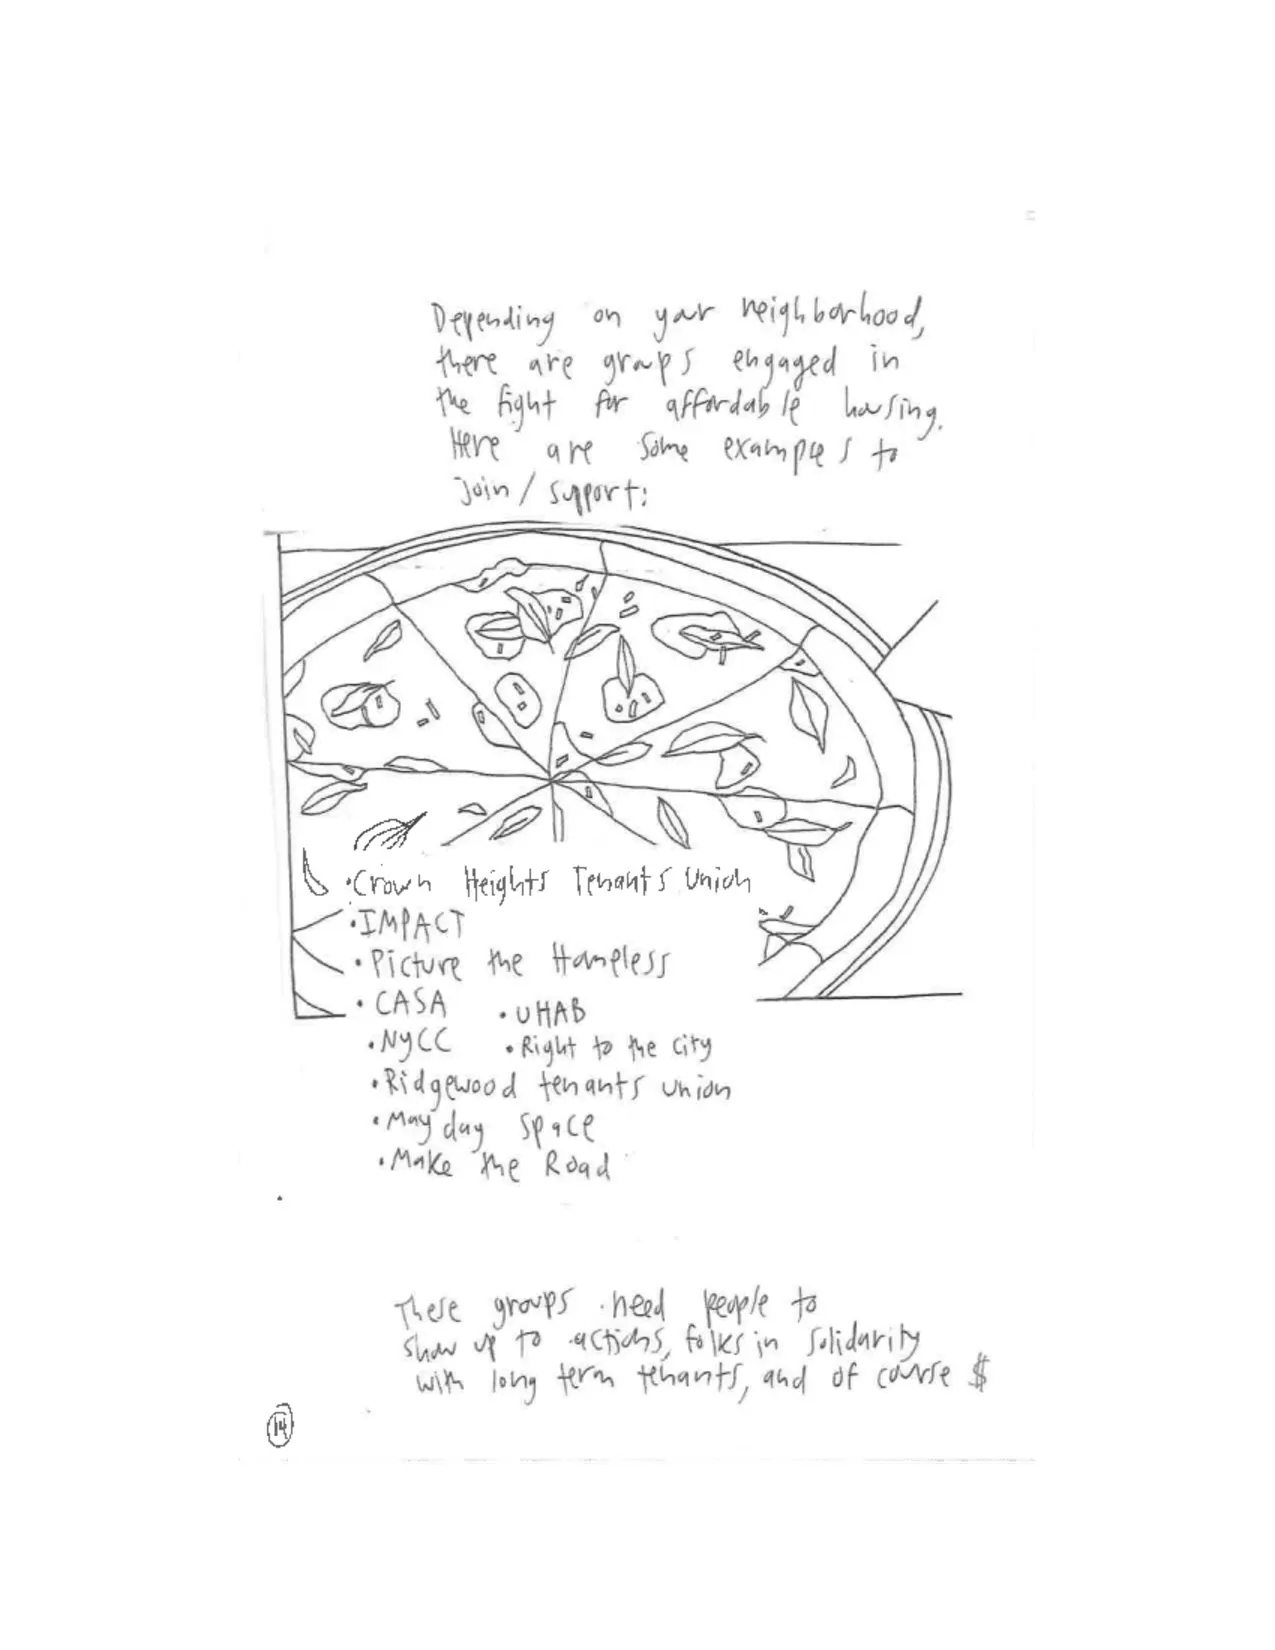 Depending on your neighborhood,
there are groups engaged in
the fight for affordable housing.
Here are some examples to
join / support:
•Crown Heights Tenants Union
•IMPACT
•Picture the Homeless
•CASA •UHAB
•NYCC •Right to the City
•Ridgewood tenants union
•May day space
•Make the Road
These groups need people to
show up to actions, folks in solidarity
with long term tenants, and of course $
14